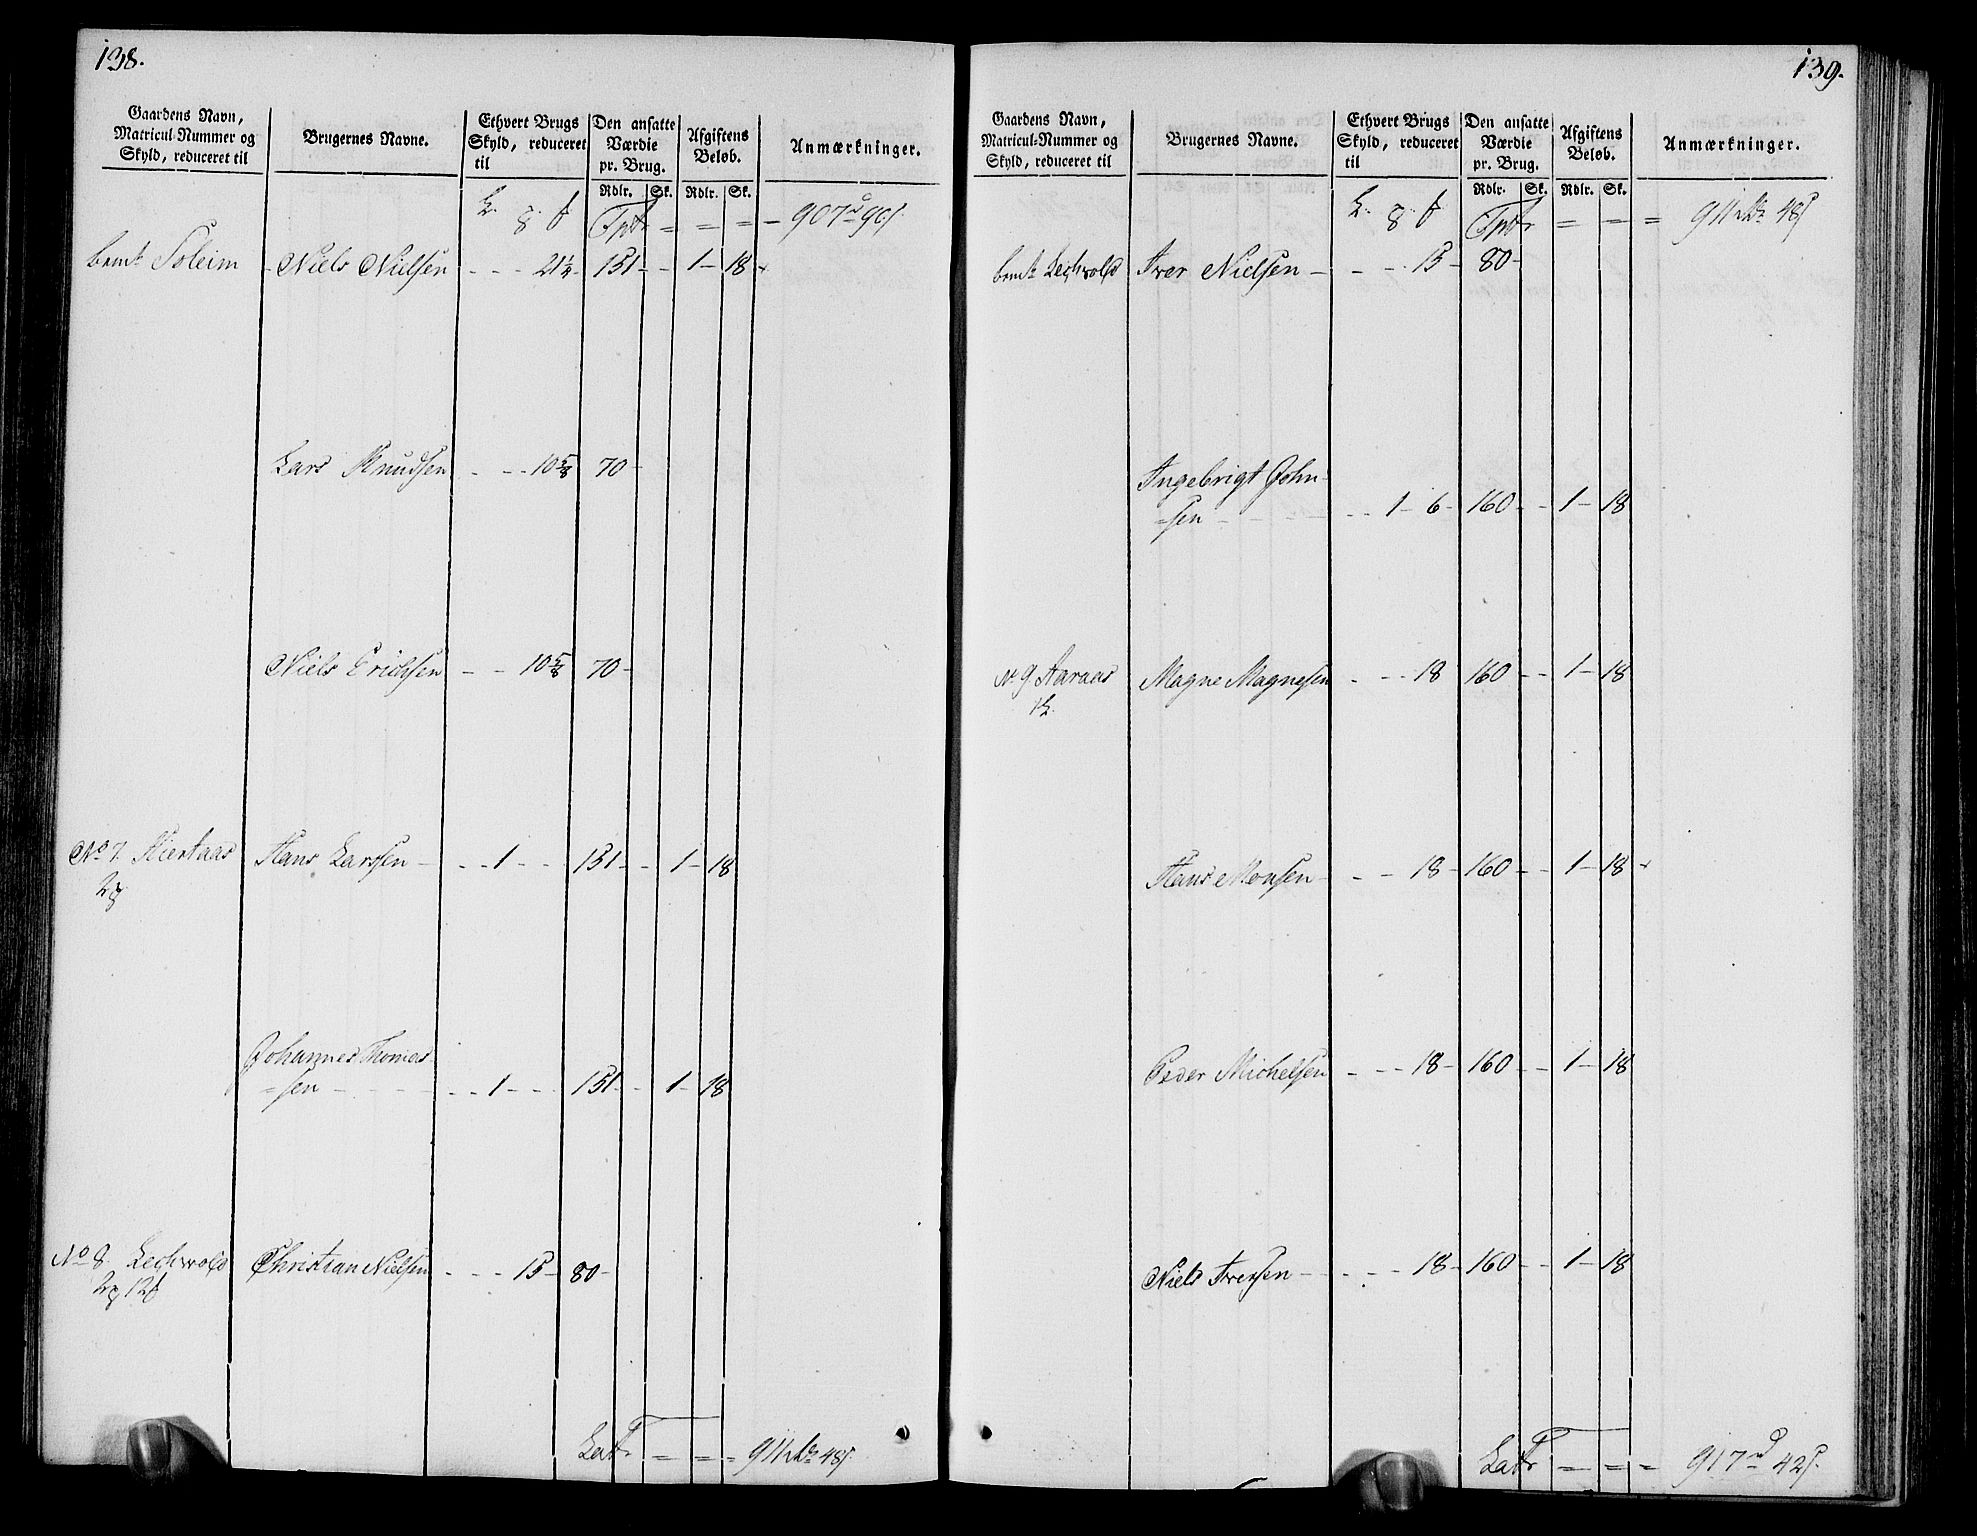 138.
Gaardens Navn,
Matricul-Nummer og
Skyld, reduceret til
Brugernes Navne.
Ethvert Brugs
Skyld, reduceret
til
Den ansatte
Værdie
pr. Brug.
Rdlr. Sk.
Afgiftens
Beløb.
Rdlr. Sk.
Anmærkninger.
Tptr = = = 907 90
bemt Soleim Niels Nielsen - - - 21¼ 151 - - 1 - 18
Lars Knudsen - - - 10⅝ 70 -
Niels Erichsen - - 10⅝ 70 -
No 7. Kiertaas Hans Larssen - - - 1 - - 151 - - 1 - 18
2
Johannes Thomes-
=sen - - - - - 1 - - - 151 - - 1 - 18
No 8. Lechvold Christian Nielsen - - - 15 - 80 -
2 12
Latr = = = 911 48
139.
Gaardens Navn,
Matricul-Nummer og
Skyld, reduceret til
Brugernes Navne.
Ethvert Brugs
Skyld, reduceret
til
Den ansatte
Værdie
pr. Brug.
Rdlr. Sk.
Afgiftens
Beløb.
Rdlr. Sk.
Anmærkninger.
Tptr = = = 911 48
bemt Lechvold Iver Nielsen - - - 15 - 80 -
Ingebrigt John-
=sen - - - - - 1 - 6 - 160 - - 1 - 18
No 9 Aaraas Magne Magnesen - - - 18 160 - - 1 - 18
Hans Monsen - - - 18 - 160 - - 1 - 18
Peder Michelsen - - - 18 - 160 - - 1 - 18
Niels Iversen - - - 18 - 160 - - 1 - 18
Latr = = = 917 42